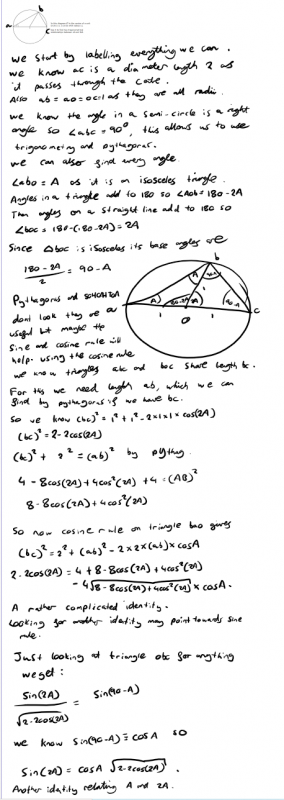 b
a
c
we start by labelling everything we can.
we know ac is a diameter length 2 as
it passes through the centre.
Also ab = ao = oc = 1 as they are all radii.
we know the angle in a semi-circle is a right
angle so ∠abc = 90°, this allows us to use
trigonometry and pythagoras.
we can also find every angle
∠abo = A as it is an isosceles triangle.
Angles in a triangle add to 180 so ∠Aob = 180-2A
Then angles on a straight line add to 180 so
∠boc = 180-(180-2A) = 2A
Since Δboc is isosceles its base angles are
(180-2A)/2 = 90-A
b
A
90-A
A
180-2A
2A
90-A
1
1
1
O
c
Pythagoras and SOHCAHTOA
dont look they are
useful but maybe the
sine and cosine rule will
help. using the cosine rule
we know triangles abc and boc share length bc.
For this we need length ab, which we can
find by pythagoras if we have bc.
So we know (bc)² = 1² + 1² - 2×1×1×cos(2A)
(bc)² = 2-2cos(2A)
(bc)² + 2² = (ab)² by pythag.
4 - 8cos(2A) + 4cos²(2A) + 4 = (AB)²
8 - 8cos(2A) + 4cos²(2A)
So now cosine rule on triangle bao gives
(bc)² = 2² + (ab)² - 2×2×(ab)×cosA
2-2cos(2A) = 4 + 8-8cos(2A) + 4cos²(2A)
- 4√(8-8cos(2A)+4cos²(2A)) × cosA.
A rather complicated identity.
Looking for another identity may point towards sine
rule.
Just looking at triangle obc for anything
we get:
Sin(2A)/√(2-2cos(2A)) = Sin(90-A)
we know Sin(90-A) ≡ cosA so
Sin(2A) = cosA √(2-2cos(2A)).
Another identity relating A and 2A.